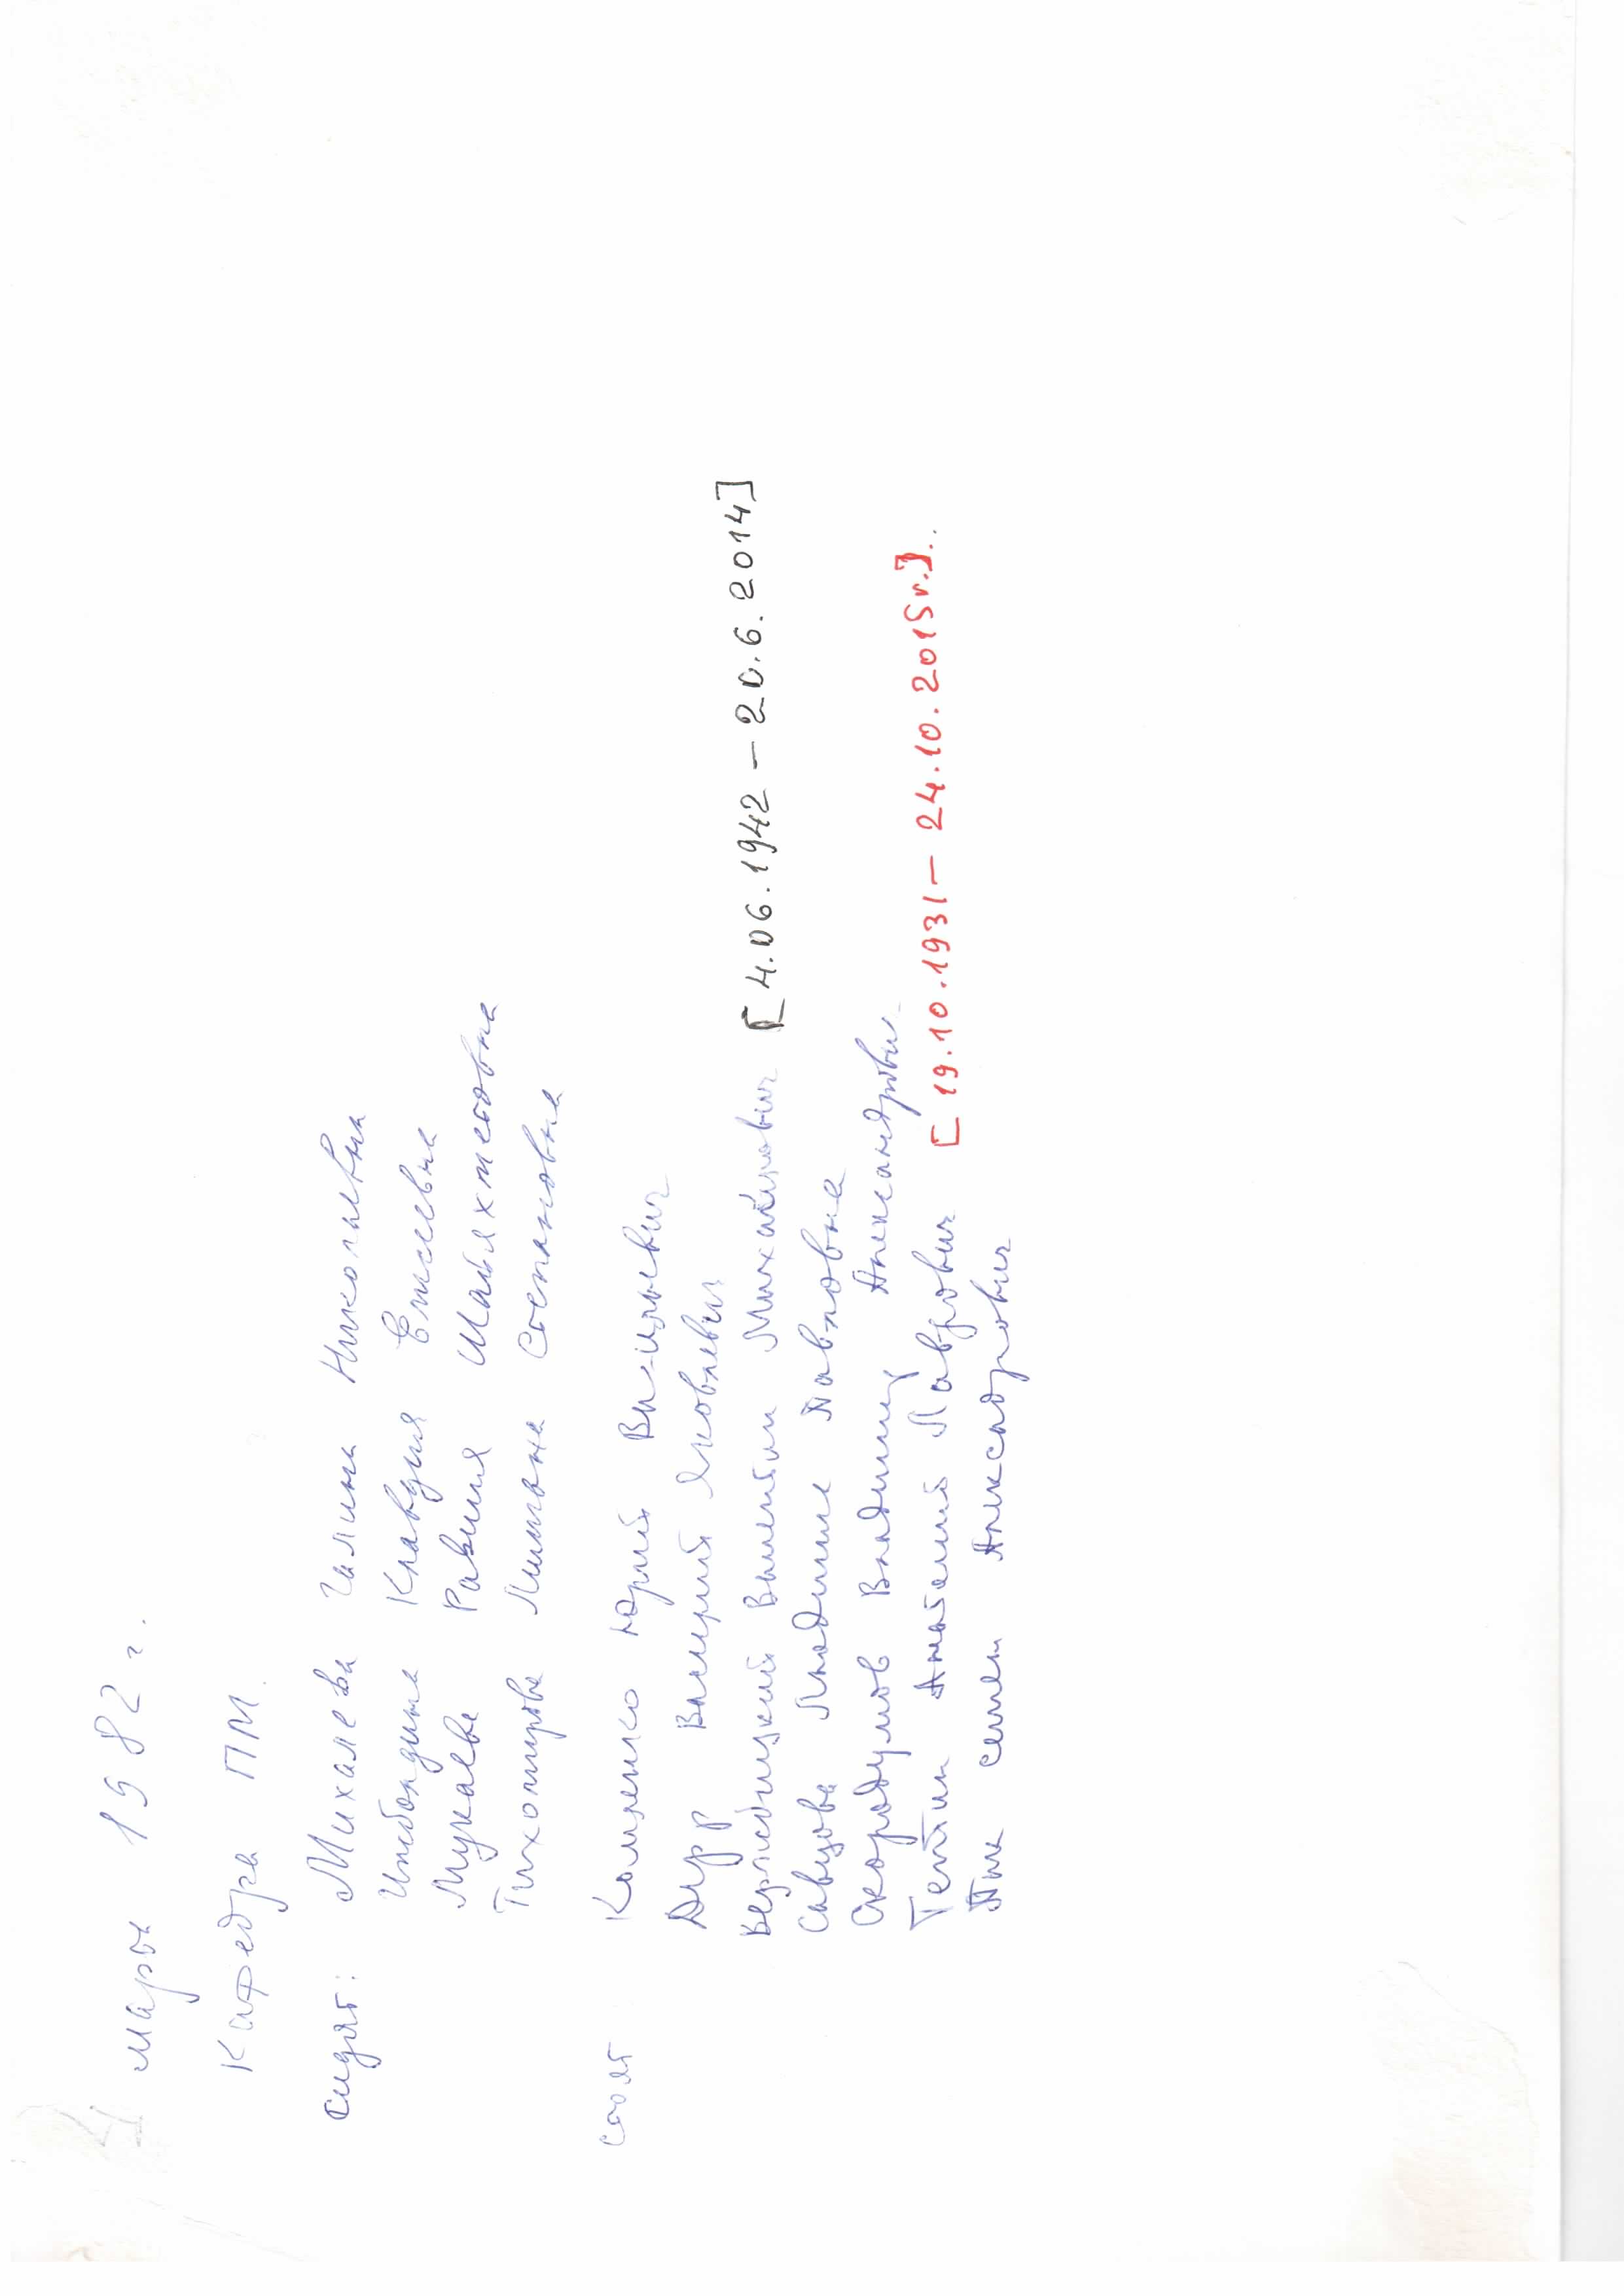 март 1982 г.
Кафедра ПМ.
сидят: Михалева Галина Николаевна
Клавдия Елисеевна
Мукаева Равиля
Тихомирова Лилиана Состиковна
стоят Коляенко Юрий Васильевич
Дерр Валерий Яковлевич
Вержбицкий Валентин Михайлович [4.06.1942 – 20.6.2014]
Савцова Людмила Павловна
Скородумов Владимир Александрович
Тептин Анатолий Лаврович [19.10.1931 – 24.10.2015г.]..
Пак Александрович